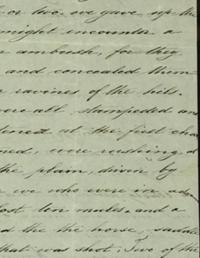 or two, we gave up the
might encounter a
ambush, for they
and concealed them
ravines of the hills.
were all stampeded an
at the first cha
were rushing
the plain, driven by
we who were in adv
lost ten mules, and a
and the the horse, saddle
that was shot; Two of the